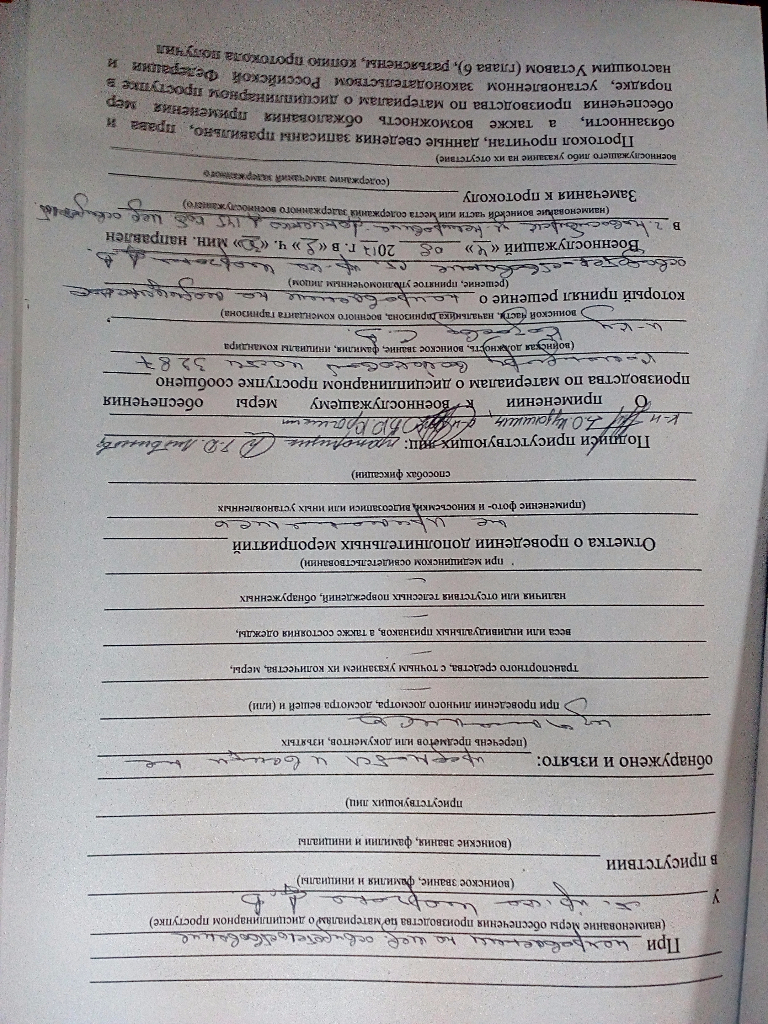 При направлении на мед. освидетельствование
(наименование меры обеспечения производства по материалам о дисциплинарном проступке)
У ст. пр-ка
(воинское звание, фамилия и инициалы)
в присутствии
(воинские звания, фамилии и инициалы
присутствующих лиц)
обнаружено и изъято: предметы и вещи не
(перечень предметов или документов, изъятых
изымались
при проведении личного досмотра, досмотра вещей и (или)
транспортного средства, с точным указанием их количества, меры,
веса или индивидуальных признаков, а также состояния одежды,
наличия или отсутствия телесных повреждений, обнаруженных
при медицинском освидетельствовании)
Отметка о проведении дополнительных мероприятий
не применялись
(применение фото- и киносъемки, видеозаписи или иных установленных
способах фиксации)
Подписи присутствующих лиц: прапорщик
к-н
О применении к военнослужащему меры обеспечения
производства по материалам о дисциплинарном проступке сообщено
Командиру войсковой части 3287
(воинская должность, воинское звание, фамилия, инициалы командира
п-к
воинской части, начальника гарнизона, военного коменданта гарнизона)
который принял решение о направление на медицинское
(решение, принятое уполномоченным лицом)
освидетельствование ст. пр-ка
Военнослужащий «4» 08 2017 г. в ч. мин. направлен
в г. Новосибирск
(наименование воинской части или места содержания задержанного военнослужащего)
Замечания к протоколу
(содержание замечаний задержанного
военнослужащего либо указание на их отсутствие)
Протокол прочитан, данные сведения записаны правильно, права и
обязанности, а также возможность обжалования применения мер
обеспечения производства по материалам о дисциплинарном проступке в
порядке, установленном законодательством Российской Федерации и
настоящим Уставом (глава 6), разъяснены, копию протокола получил